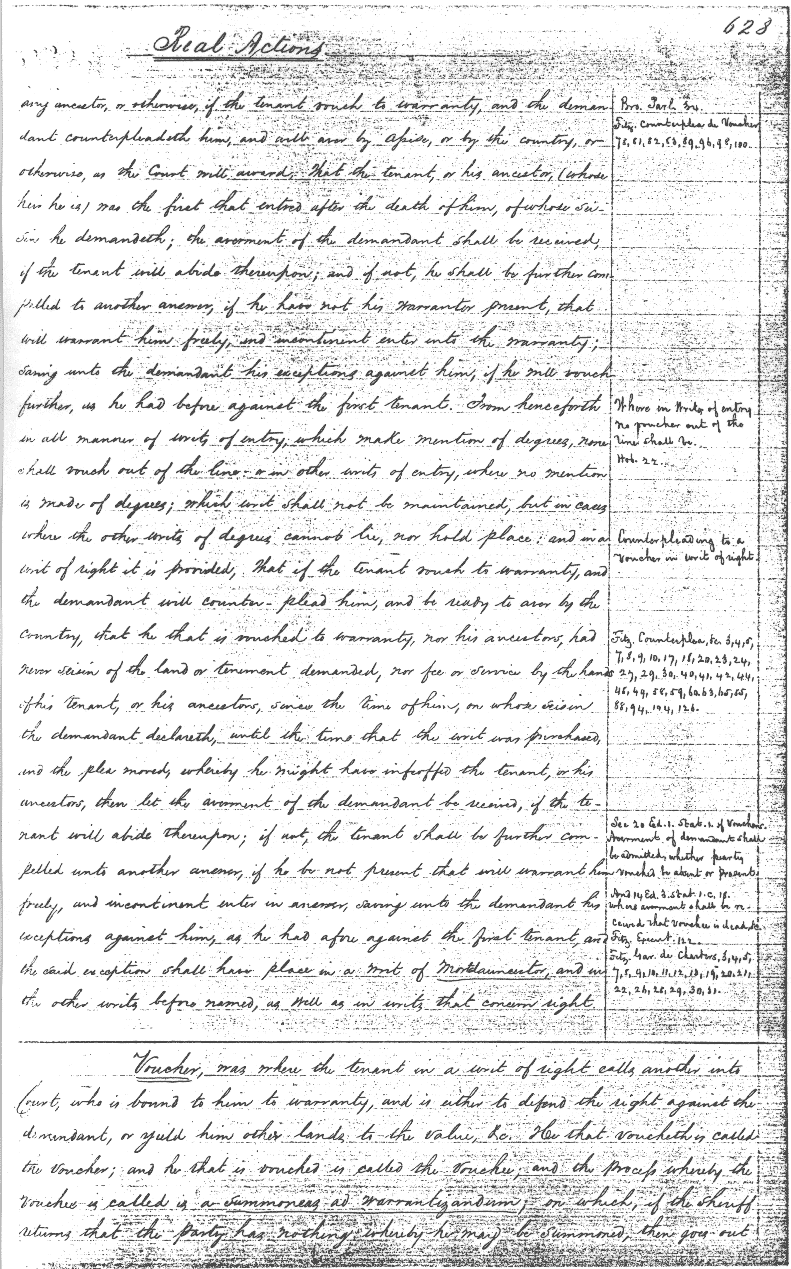 628
Real Actions
any ancestor, or otherwise, if the tenant vouch to warranty, and the deman-
dant counterpleadeth him, and will aver by Assise, or by the country, or
otherwise, as the Court will award, That the tenant, or his ancestor, (whose
heir he is) was the first that entred after the death of him, of whose sei-
sin he demandeth; the averment of the demandant shall be received,
if the tenant will abide thereupon; and if not, he shall be further com-
pelled to another answer, if he have not his warrantor present, that
will warrant him freely, and incontinent enter into the warranty;
saving unto the demandant his exceptions against him, if he will vouch
further, as he had before against the first tenant. From henceforth
in all manner of writs of entry, which make mention of degrees, none
shall vouch out of the line - or in other writs of entry, where no mention
is made of degrees; which writ shall not be maintained, but in cases
where the other writs of degrees cannot lie, nor hold place: and in a
writ of right it is provided, That if the tenant vouch to warranty, and
the demandant will counter-plead him, and be ready to aver by the
country, that he that is vouched to warranty, nor his ancestors, had
never seisin of the land or tenement demanded, nor fee or service by the hands
of his tenant, or his ancestors, since the time of him, on whose seisin
the demandant declareth, until the time that the writ was purchased,
and the plea moved, whereby he might have infeoffed the tenant, or his
ancestors, then let the averment of the demandant be received, if the te-
nant will abide thereupon; if not, the tenant shall be further com-
pelled unto another answer, if he be not present that will warrant him
freely, and incontinent enter in answer, saving unto the demandant his
exceptions against him, as he had afore against the first tenant, and
the said exception shall have place in a writ of Mortdauncestor, and in
the other writs before named, as well as in writs that concern right
Bro. Parl. 34.
Fitz. Counterplea de Voucher
78, 81, 82, 83, 89, 96, 98, 100.
Where in Writs of entry
no voucher out of the
line shall be.
Hob. 22.
Counterpleading to a
voucher in writ of right.
Fitz. Counterplea, &c. 3, 4, 5,
7, 8, 9, 10, 17, 18, 20, 23, 24,
27, 29, 30, 40, 41, 42, 44,
See 20 Ed. 1. Stat. 1. of Vouchers.
Averment of demandant shall
be admitted, whether party
vouched be absent or present.
And 14 Ed. 3. Stat. 1. C. 18.
where averment shall be re-
ceived that Vouchee is dead, &c.
Fitz. 122.
Fitz. Gar. de Charters, 3, 4, 5,
7, 8, 9, 10, 11, 12, 19, 20, 21,
22, 26, 28, 29, 30, 31.
Voucher, was where the tenant in a writ of right calls another into
Court, who is bound to him to warranty, and is either to defend the right against the
demandant, or yield him other lands to the value, &c. He that voucheth is called
the voucher; and he that is vouched is called the vouchee, and the process whereby the
vouchee is called is a summoneas ad warrantizandum, on which, if the sheriff
returns that the party has nothing whereby he may be summoned, then goes out